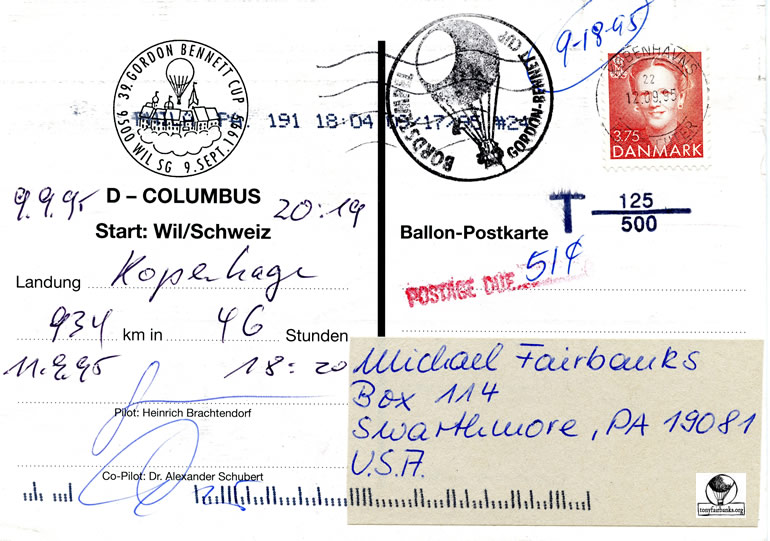 39. GORDON BENNETT CUP
9500 WIL SG 9. SEPT. 1995
191 18:04 09/17/95 #24
BORDSTEMPEL
GORDON-BENNETT CUP
9-18-95
KØBENHAVNS
22
12.09.95
3.75
DANMARK
9.9.95 D – COLUMBUS 20:19
Start: Wil/Schweiz
Landung Kopenhagen
934 km in 46 Stunden
11.9.95 18:20
Pilot: Heinrich Brachtendorf
Co-Pilot: Dr. Alexander Schubert
T 125
500
Ballon-Postkarte
POSTAGE DUE 51¢
Michael Fairbanks
Box 114
Swarthmore, PA 19081
U.S.A.
tonyfairbanks.org